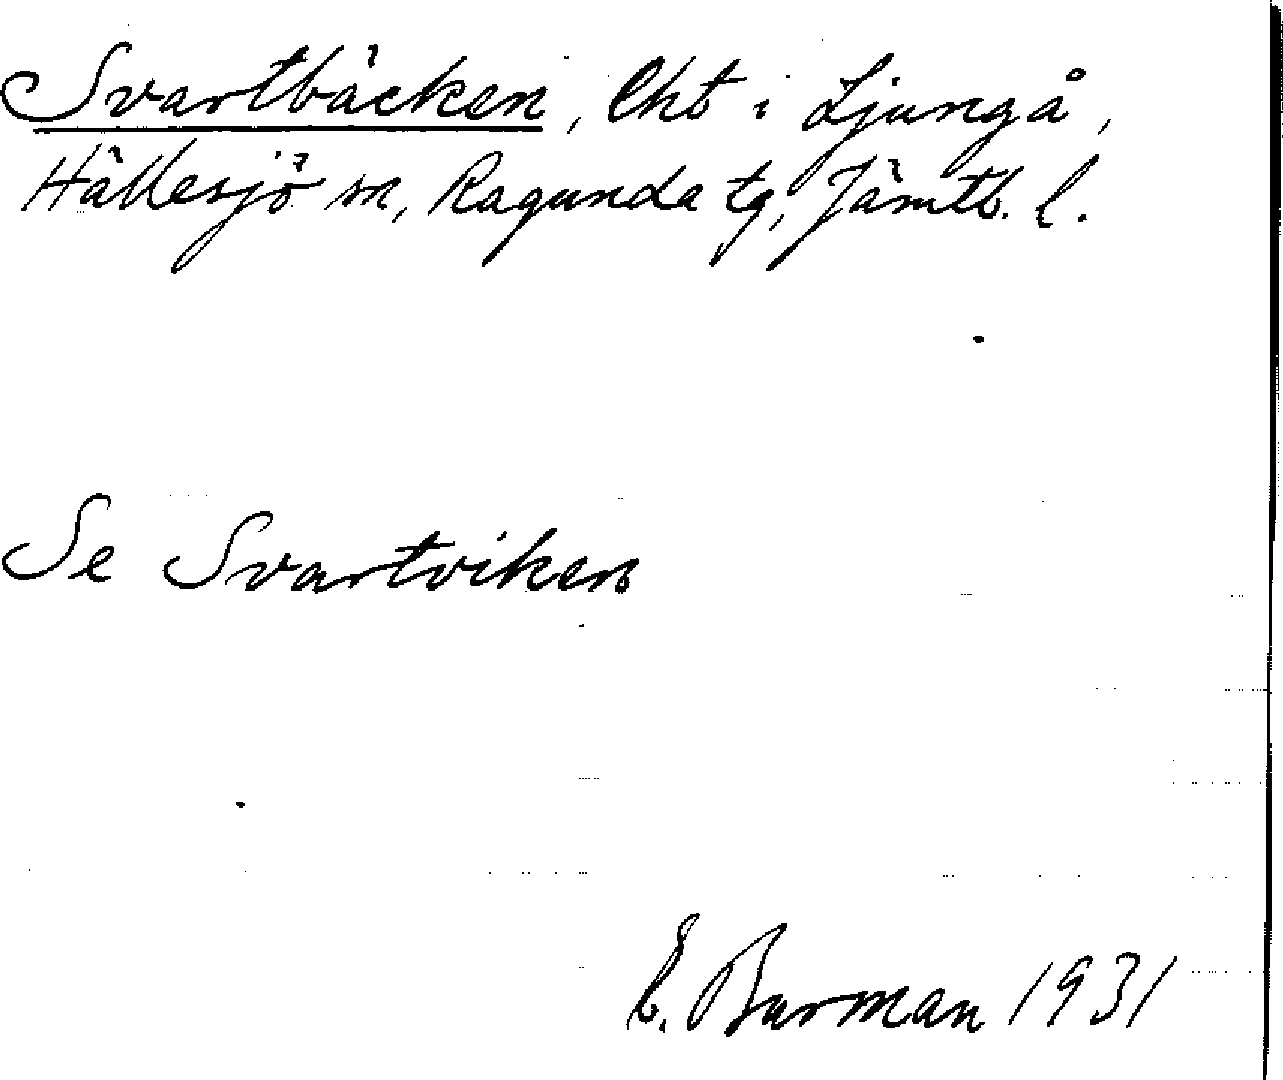 Svartbäcken, lht i Ljungå,
Hällesjö sn, Ragunda tg, Jämtl. l.
Se Svartviken
E. Burman 1931